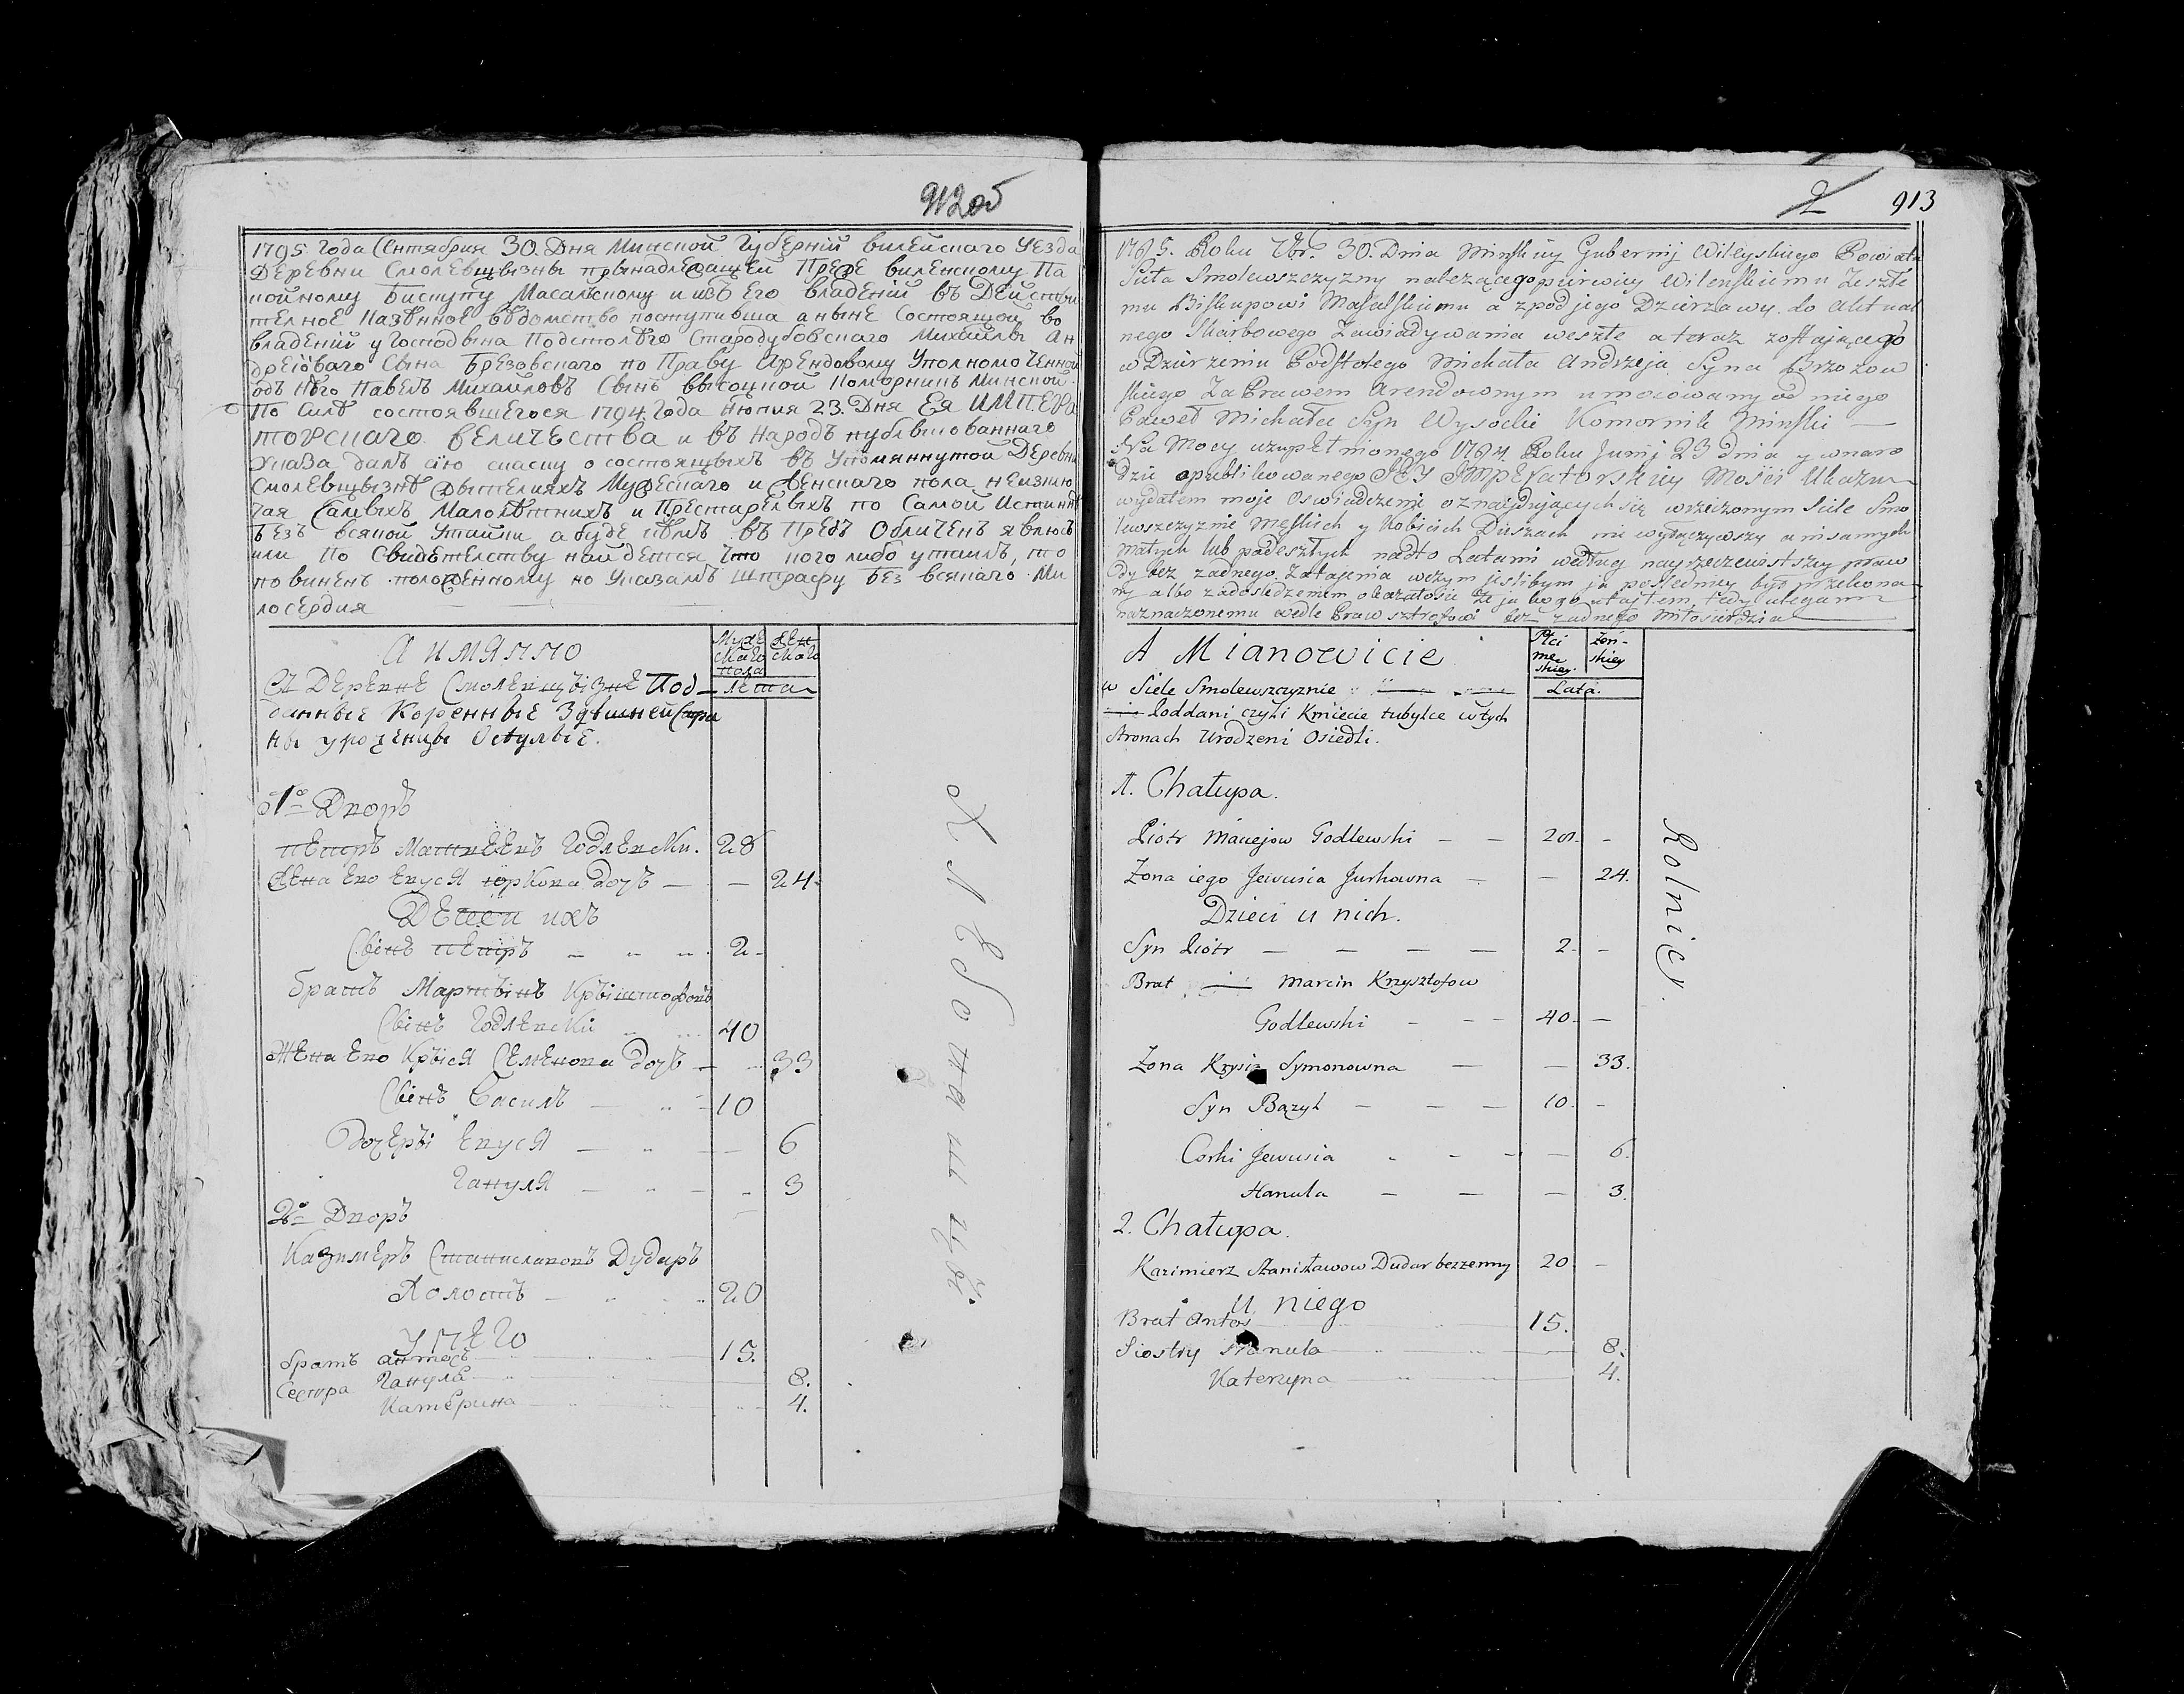 912об
1795 года Сентября 30. Дня Минской Губерніи вилейскаго уезда
Деревни Смолевщызны прынадлежащей Прежде виленскому Па
койному Бискупу Масальскому и изъ Его владеніи въ Действи
телное Казенное ведомство поступивша а ныне Состоящой во
владеніи у Господвина Подстолего Стародубовскаго Михайлы Ан
дреіоваго Сына Брезовскаго по Праву Арендовому Уполномоченной
одъ Него Павелъ Михайловъ Сынъ высоцкой Коморникъ Минской
По Силе состоявшегося 1794 Года Июния 23. Дня Ея ИМПЕРА
торскаго величества и въ Народъ публыкованнаго
Указа далъ сію скаску о состоящыхъ въ Упомяннутой Деревни
Смолевщызне жытелияхъ Мужескаго и женскаго пола неизклю
чая Самыхъ Малолетнихъ и Престарелыхъ по Самой Истинне
Безъ всякой Утайки а буде въ Предъ Обличенъ явлюсь
или по Свидетелству найдется что кого либо утаилъ, то
повиненъ положенному по Указамъ Штрафу без всякаго Ми
лосердия
А имянно
Муже
скаго
пола
жен
скаго
Лета
Въ Деревне Смолевщызне Под
данные Коренные Здешней Стра
ны уроженцы Оседлые.
1о Дворъ
Петръ Матвеевъ Годлевски. 28
Жена его Евуся юркова дочь — — 24.
Дети ихъ
Сынъ Петръ 2
братъ Мартынъ Крыштофовъ
Сынъ Годлевски 40
Жена его Крыся Семенова дочь — 33
Сынъ Василь — 10
Дочеры Евуся — 6
Гануля — 3
2о Дворъ
Казимеръ Станиславовъ Дударъ
Холостъ — 20
У него
братъ антось 15.
Сестра Гануля 8.
Катерина 4.
Хлебопашцы.
2 913
1795. Roku 7br. 30. Dnia Minskiey Gubernij Wileyskiego Powiatu
Siła Smolewszczyzny należącego pierwiey Wilenskiemu Zeszłe
mu Biskupowi Masalskiemu a zpod jego Dzierżawy do Aktual
nego Skarbowego Zawiadywania weszłe a teraz zostającego
w Dzierżeniu Podstolego Michała Andrzeja Syna Brzozow
skiego Za Prawem Arendownym umocowany od niego
Paweł Michała Syn Wysocki Komornik Minski —
Na Mocy uzupełnionego 1794 Roku Junij 23 Dnia y w naro
dzie opublikowanego JEY IMPERatorskiey Mości Ukazu
wydałem moje Oswiadczenie o znaydujących się w rzeczonym Siele Smo
lewszczyznie Męskich y kobicich Duszach nie wyłączywszy ani samych
Małych lub podeszłych nadto Latami według nayrzeczewistszey praw
dy bez żadnego Zatajenia w czym jeslibym ja poslednicy był przekona
ny albo zadosledzeniem okazałosie że ja kogo utajłem, tedy ulegam
naznaczonemu wedle Praw sztrofowi bez żadnego Miłosierdzia
A Mianowicie
Płci
mę
skiey.
żoń-
skiey
Lata.
w Siele Smolewszczyznie
Poddani czyli Kmiecie tubylce w tych
Stronach Urodzeni Osiedli.
1. Chałupa.
Piotr Maciejow Godlewski — — 28. -
Zona iego Jewusia Jurkowna — — 24.
Dzieci u nich.
Syn Piotr — — — — 2. -
Brat Marcin Krzysztofow
Godlewski - - — 40. —
Zona Krysia Symonowna — — 33.
Syn Bazyl — — — 10. -
Corki Jewusia - - - — 6.
Hanula — — — 3.
2. Chałupa.
Kazimierz Stanisławow Dudar bezzenny 20 -
U niego
Brat Antoś 15.
Siostry Hanula 8.
Katerzyna 4.
Rolnicy.